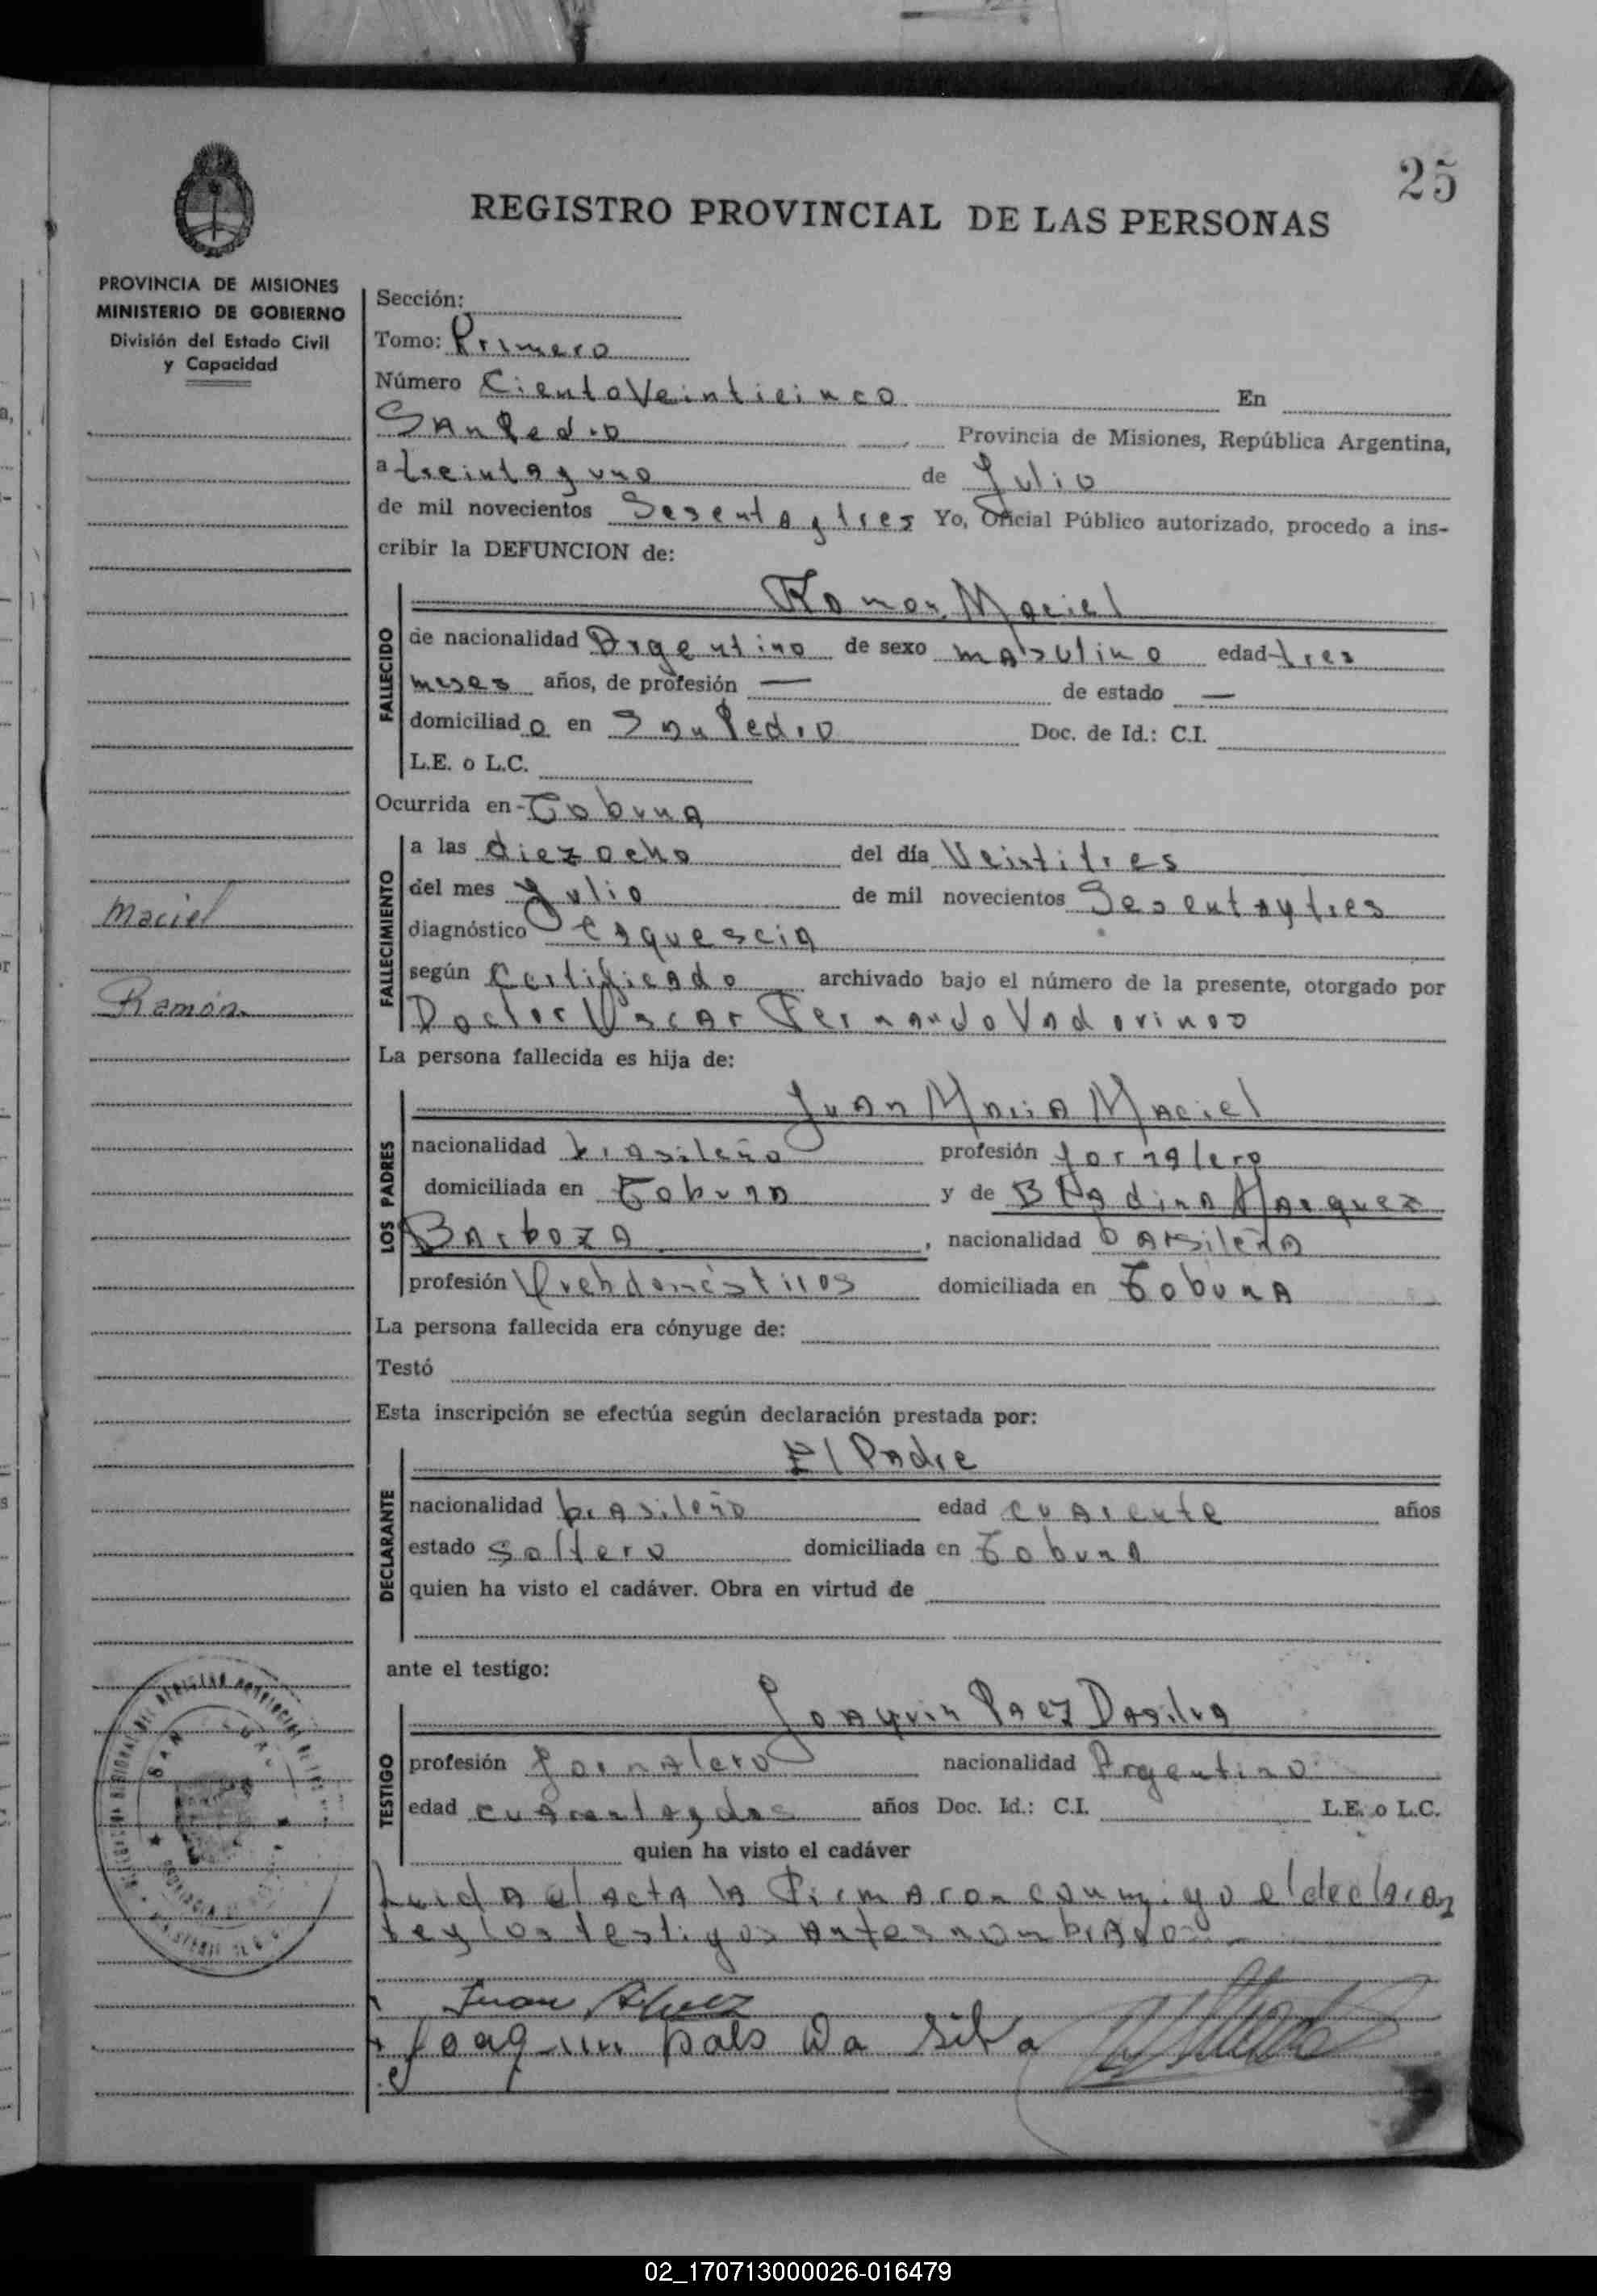 25
REGISTRO PROVINCIAL DE LAS PERSONAS
PROVINCIA DE MISIONES
MINISTERIO DE GOBIERNO
División del Estado Civil
y Capacidad
Maciel
Ramón
Sección:
Tomo: Primero
Número Ciento Veinticinco En
San Pedro Provincia de Misiones, República Argentina,
a treinta y uno de Julio
de mil novecientos Sesenta y tres Yo, Oficial Público autorizado, procedo a ins-
cribir la DEFUNCION de:
Ramon Maciel
FALLECIDO
de nacionalidad Argentino de sexo masculino edad tres
meses años, de profesión — de estado —
domiciliado en San Pedro Doc. de Id.: C.I.
L.E. o L.C.
Ocurrida en - Tobuna
FALLECIMIENTO
a las diez ocho del día Veintitres
del mes Julio de mil novecientos Sesenta y tres
diagnóstico
según Certificado archivado bajo el número de la presente, otorgado por
Doctor Oscar Fernando
La persona fallecida es hija de:
Juan Maria Maciel
LOS PADRES
nacionalidad brasileño profesión Jornalero
domiciliada en Tobuna y de Bladina Marquez
Barboza, nacionalidad
profesión domiciliada en Tobuna
La persona fallecida era cónyuge de:
Testó
Esta inscripción se efectúa según declaración prestada por:
El Padre
DECLARANTE
nacionalidad brasileño edad cuarente años
estado Soltero domiciliada en Tobuna
quien ha visto el cadáver. Obra en virtud de
ante el testigo:
Joaquin Paez Dasilva
TESTIGO
profesión Jornalero nacionalidad Argentino
edad cuarenta y dos años Doc. Id.: C.I. L.E. o L.C.
quien ha visto el cadáver
Leida el acta la Firmaron conmigo el declaran
te y los testigos antes nombrados -
Juan
Joaquin pais da silva
02_170713000026-016479